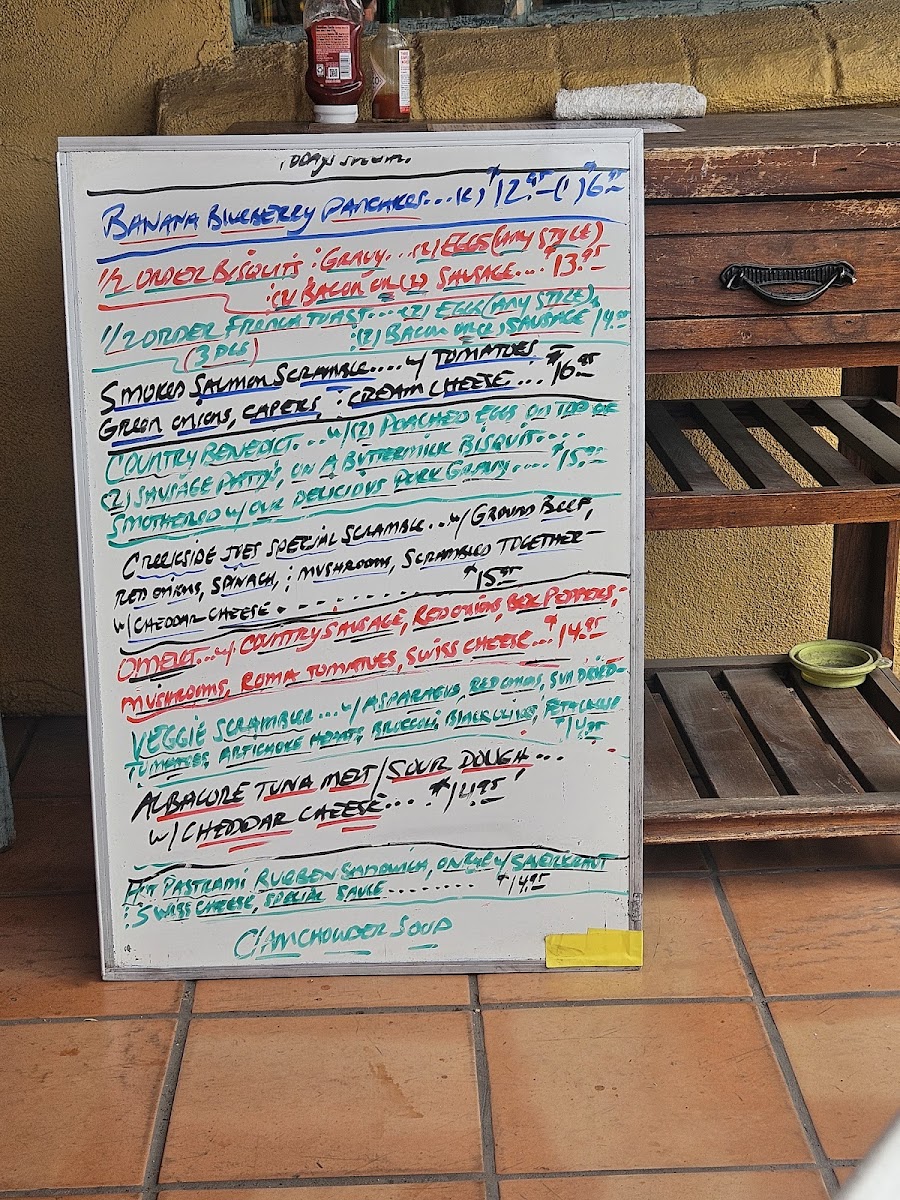 TODAYS SPECIAL
BANANA BLUEBERRY PANCAKES...(2) $12.95 - (1) $6.95
1/2 ORDER BISQUITS & GRAVY...(2) EGGS (ANY STYLE)
& (2) BACON OR (2) SAUSAGE... $13.95
1/2 ORDER FRENCH TOAST...(2) EGGS (ANY STYLE),
(3 PCS) & (2) BACON OR (2) SAUSAGE 14.95
SMOKED SALMON SCRAMBLE.... w/ TOMATOES
GREEN ONIONS, CAPERS, & CREAM CHEESE... $16.95
COUNTRY BENEDICT... w/ (2) POACHED EGGS ON TOP OF
(2) SAUSAGE PATTYS, ON A BUTTERMILK BISQUIT....
SMOTHERED w/ OUR DELICIOUS PORK GRAVY.... $15.95
CREEKSIDE JOES SPECIAL SCRAMBLE... w/ GROUND BEEF,
RED ONIONS, SPINACH, & MUSHROOMS, SCRAMBLED TOGETHER-
w/ CHEDDAR CHEESE .......... $15.95
OMELET... w/ COUNTRY SAUSAGE, RED ONIONS, BELL PEPPERS,-
MUSHROOMS, ROMA TOMATOES, SWISS CHEESE... $14.95
VEGGIE SCRAMBLE... w/ ASPARAGUS, RED ONIONS, SUN DRIED-
TOMATOES, ARTICHOKE HEARTS, BROCCOLI, BLACK OLIVES, FETA CHEESE
$14.95
ALBACORE TUNA MELT/SOUR DOUGH...
w/ CHEDDAR CHEESE... $14.95
HOT PASTRAMI RUEBEN SANDWICH, ON RYE w/ SAUERKRAUT
& SWISS CHEESE, SPECIAL SAUCE ........ $14.95
CLAMCHOWDER SOUP